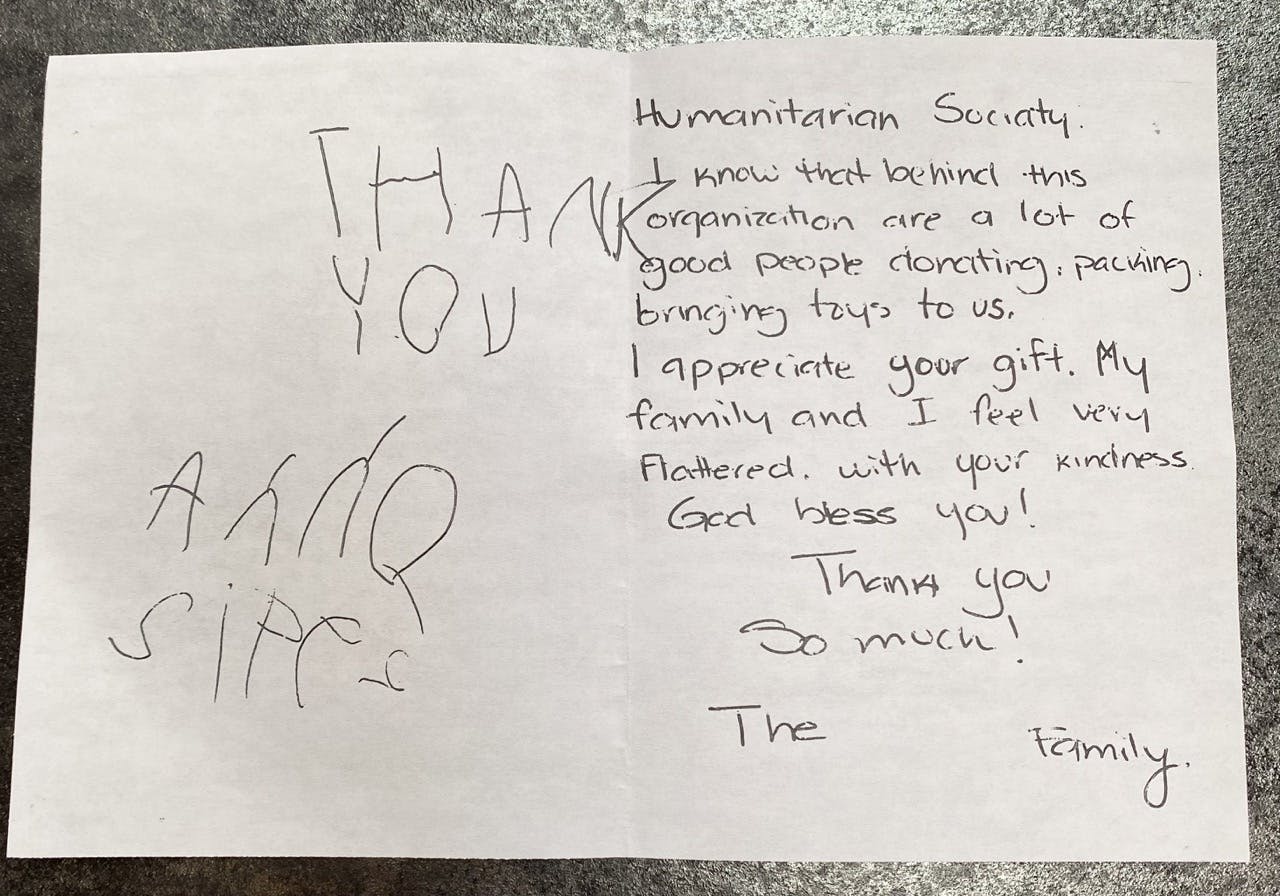 THANK
YOU
Humanitarian Sociaty.
I know that behind this
organization are a lot of
good people donating, packing,
bringing toys to us.
I appreciate your gift. My
family and I feel very
Flattered. with your kindness.
God bless you!
Thank you
So much!
The Family.